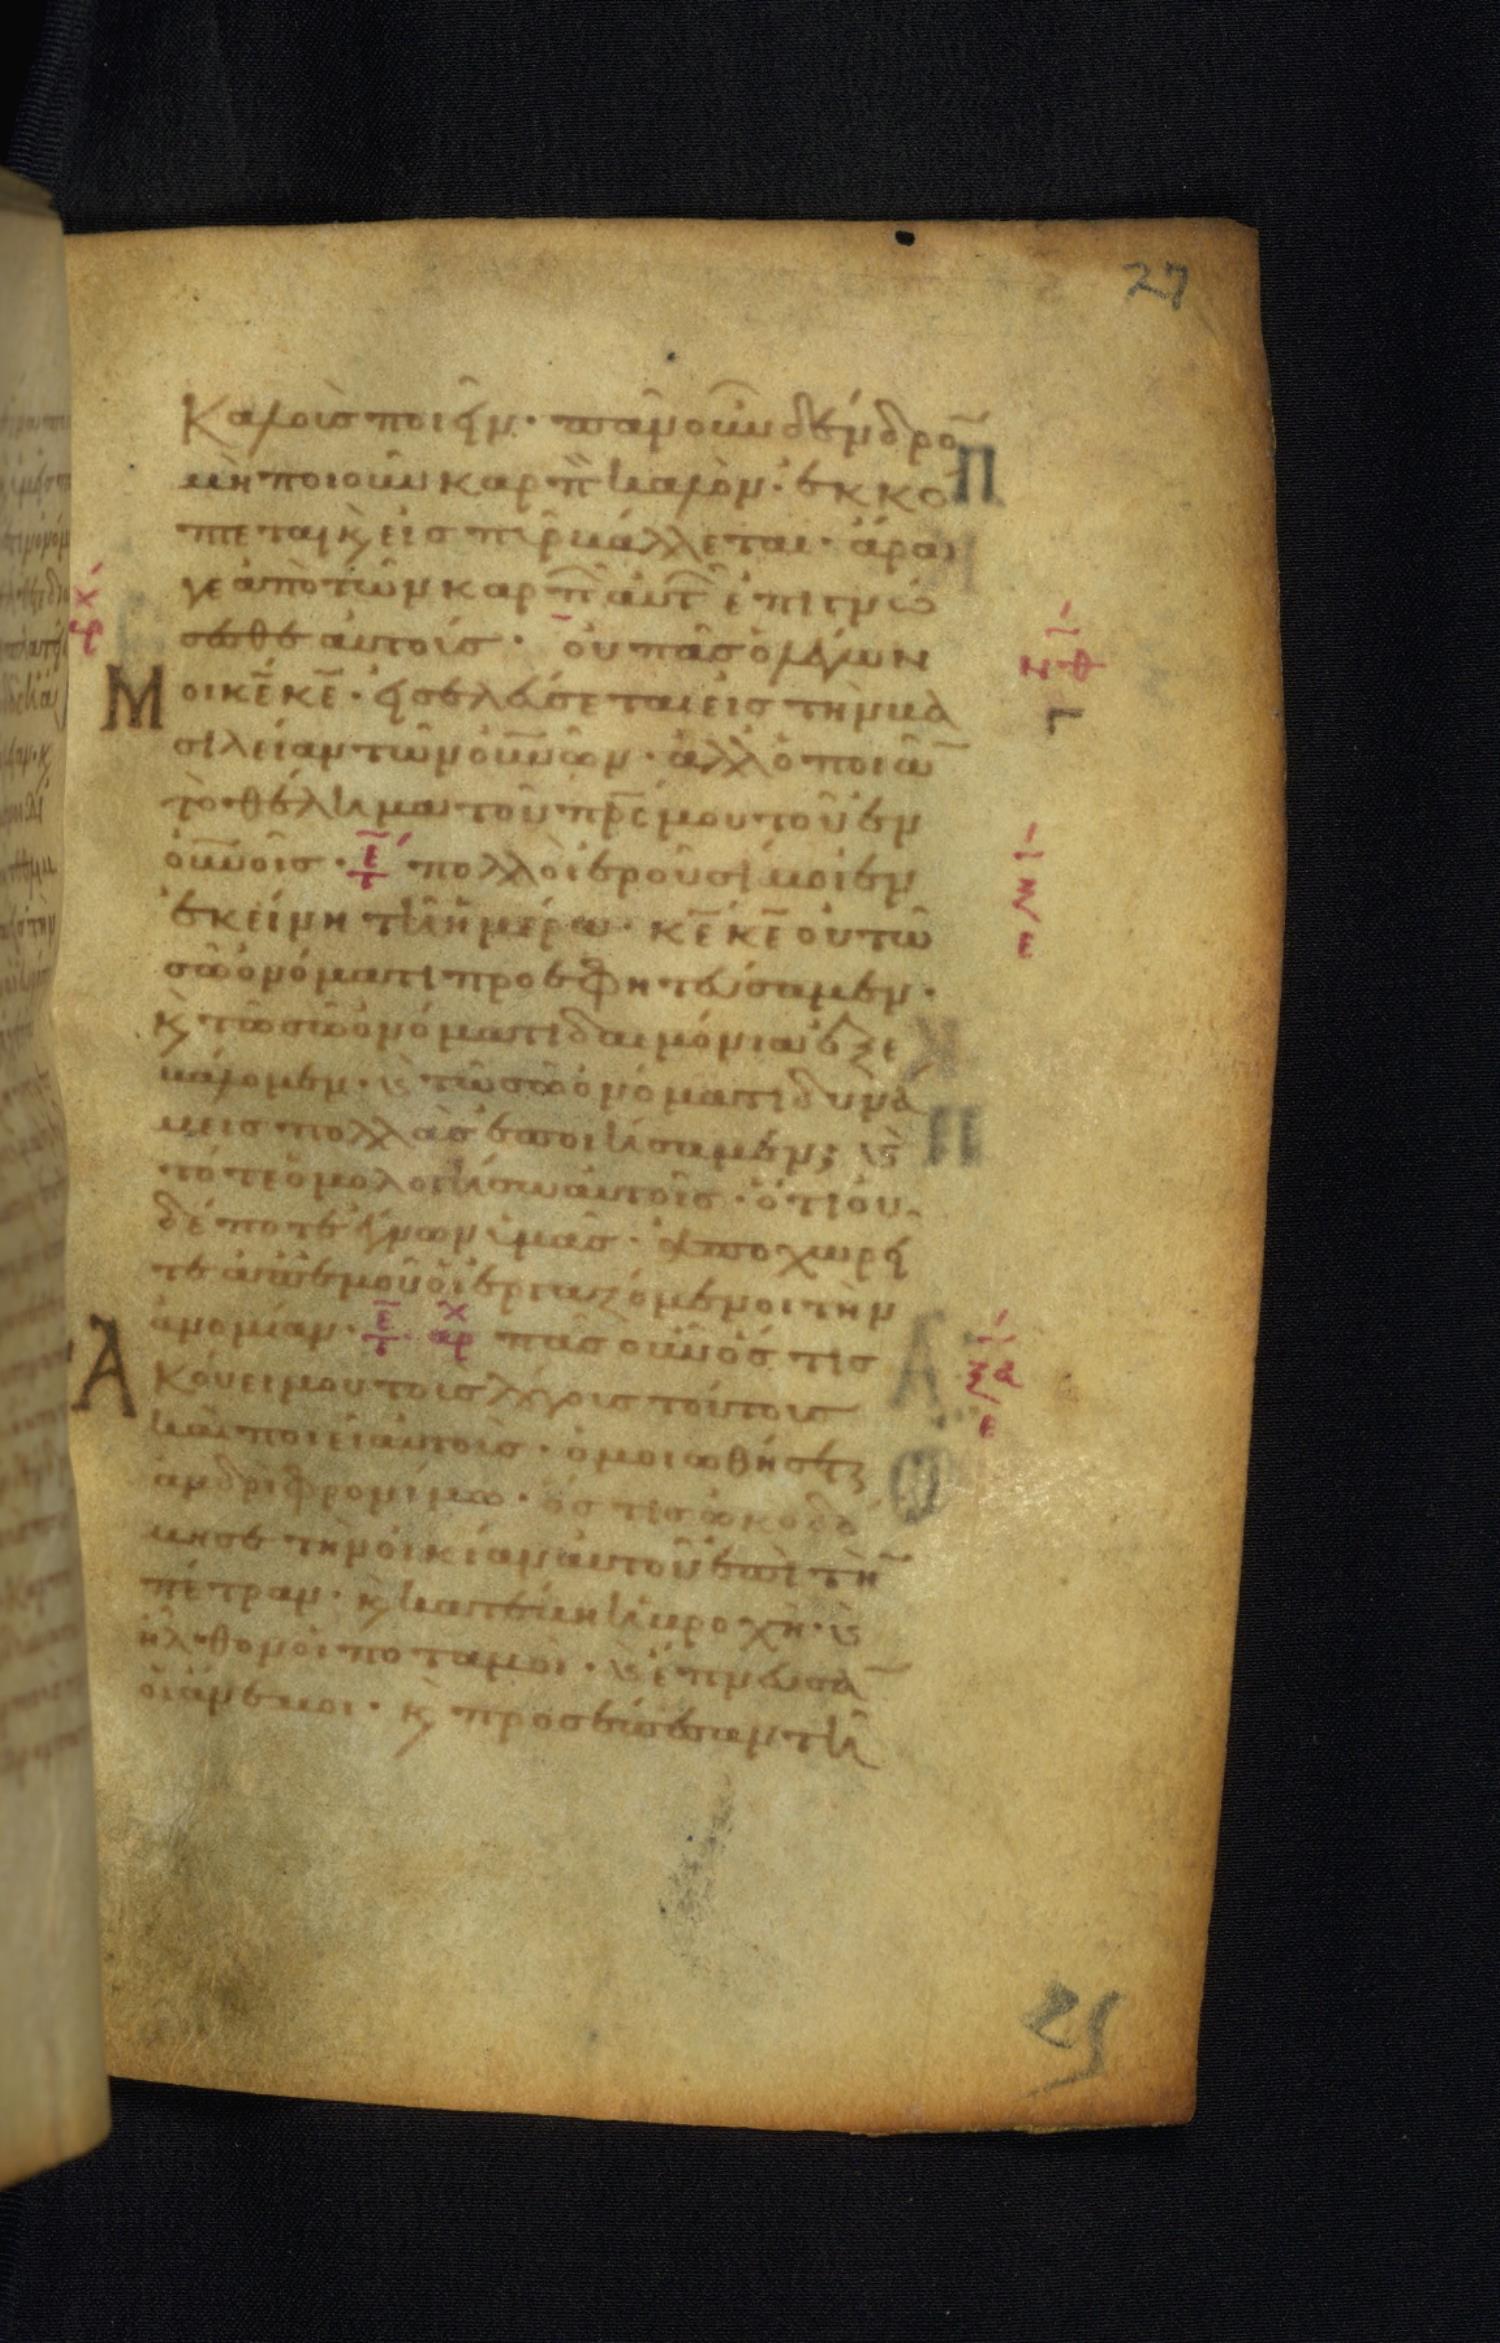 27
καλοὺς ποιεῖν· πᾶν οὖν δένδρο̄
μὴ ποιοῦν καρπ̀ καλὸν· ἐκκό
πεται κ̀ εἰς πῦρ βάλλεται· ἄρα
γε ἀπὸ τῶν καρπ̂ αὐτ̂ ἐπιγνώ
σεσθε αὐτούς· οὐ πᾶς ὁ λέγων
μοι κ̄ε κ̄ε· εἰσελεύσεται εἰς τὴν βα
σιλείαν τῶν οὐνῶν· ἀλλ ὁ ποιῶ̄
τὸ θέλημα τοῦ πρ̄ς μου τοῦ ἐν
οὐνοῖς· πολλοὶ ἐροῦσί μοι ἐν
ἐκείνη τῆ ἡμέρα· κ̄ε κ̄ε οὐ τῶ
σῶ ὀνόματι προεφητεύσαμεν·
κ̀ τῶ σῶ ὀνόματι δαιμόνια ἐξε
βάλομεν· κ̀ τῶ σῶ ὀνόματι δυνά
μεις πολλὰς ἐποιήσαμεν; κ̀
τότε ὁμολογήσω αὐτοῖς· ὅτι οὐ
δέποτε ἔγνων ὑμᾶς· ἀποχωρεῖ
τε ἀπ ἐμοῦ οἱ ἐργαζόμενοι τὴν
ἀνομίαν· πᾶς οὖν ὅστις
ἀκούει μου τοὺς λόγους τούτους
καὶ ποιεῖ αὐτοὺς· ὁμοιωθήσεται
ἀνδρὶ φρονίμω· ὅστις ὠκοδό
μησε τὴν οἰκίαν αὐτοῦ ἐπὶ τὴ̄
πέτραν· κ̀ κατέβη ἡ βροχὴ· κ̀
ἦλθον οἱ ποταμοὶ· κ̀ ἔπνευσᾱ
οἱ ἄνεμοι· κ̀ προσέπεσαν τῆ
25